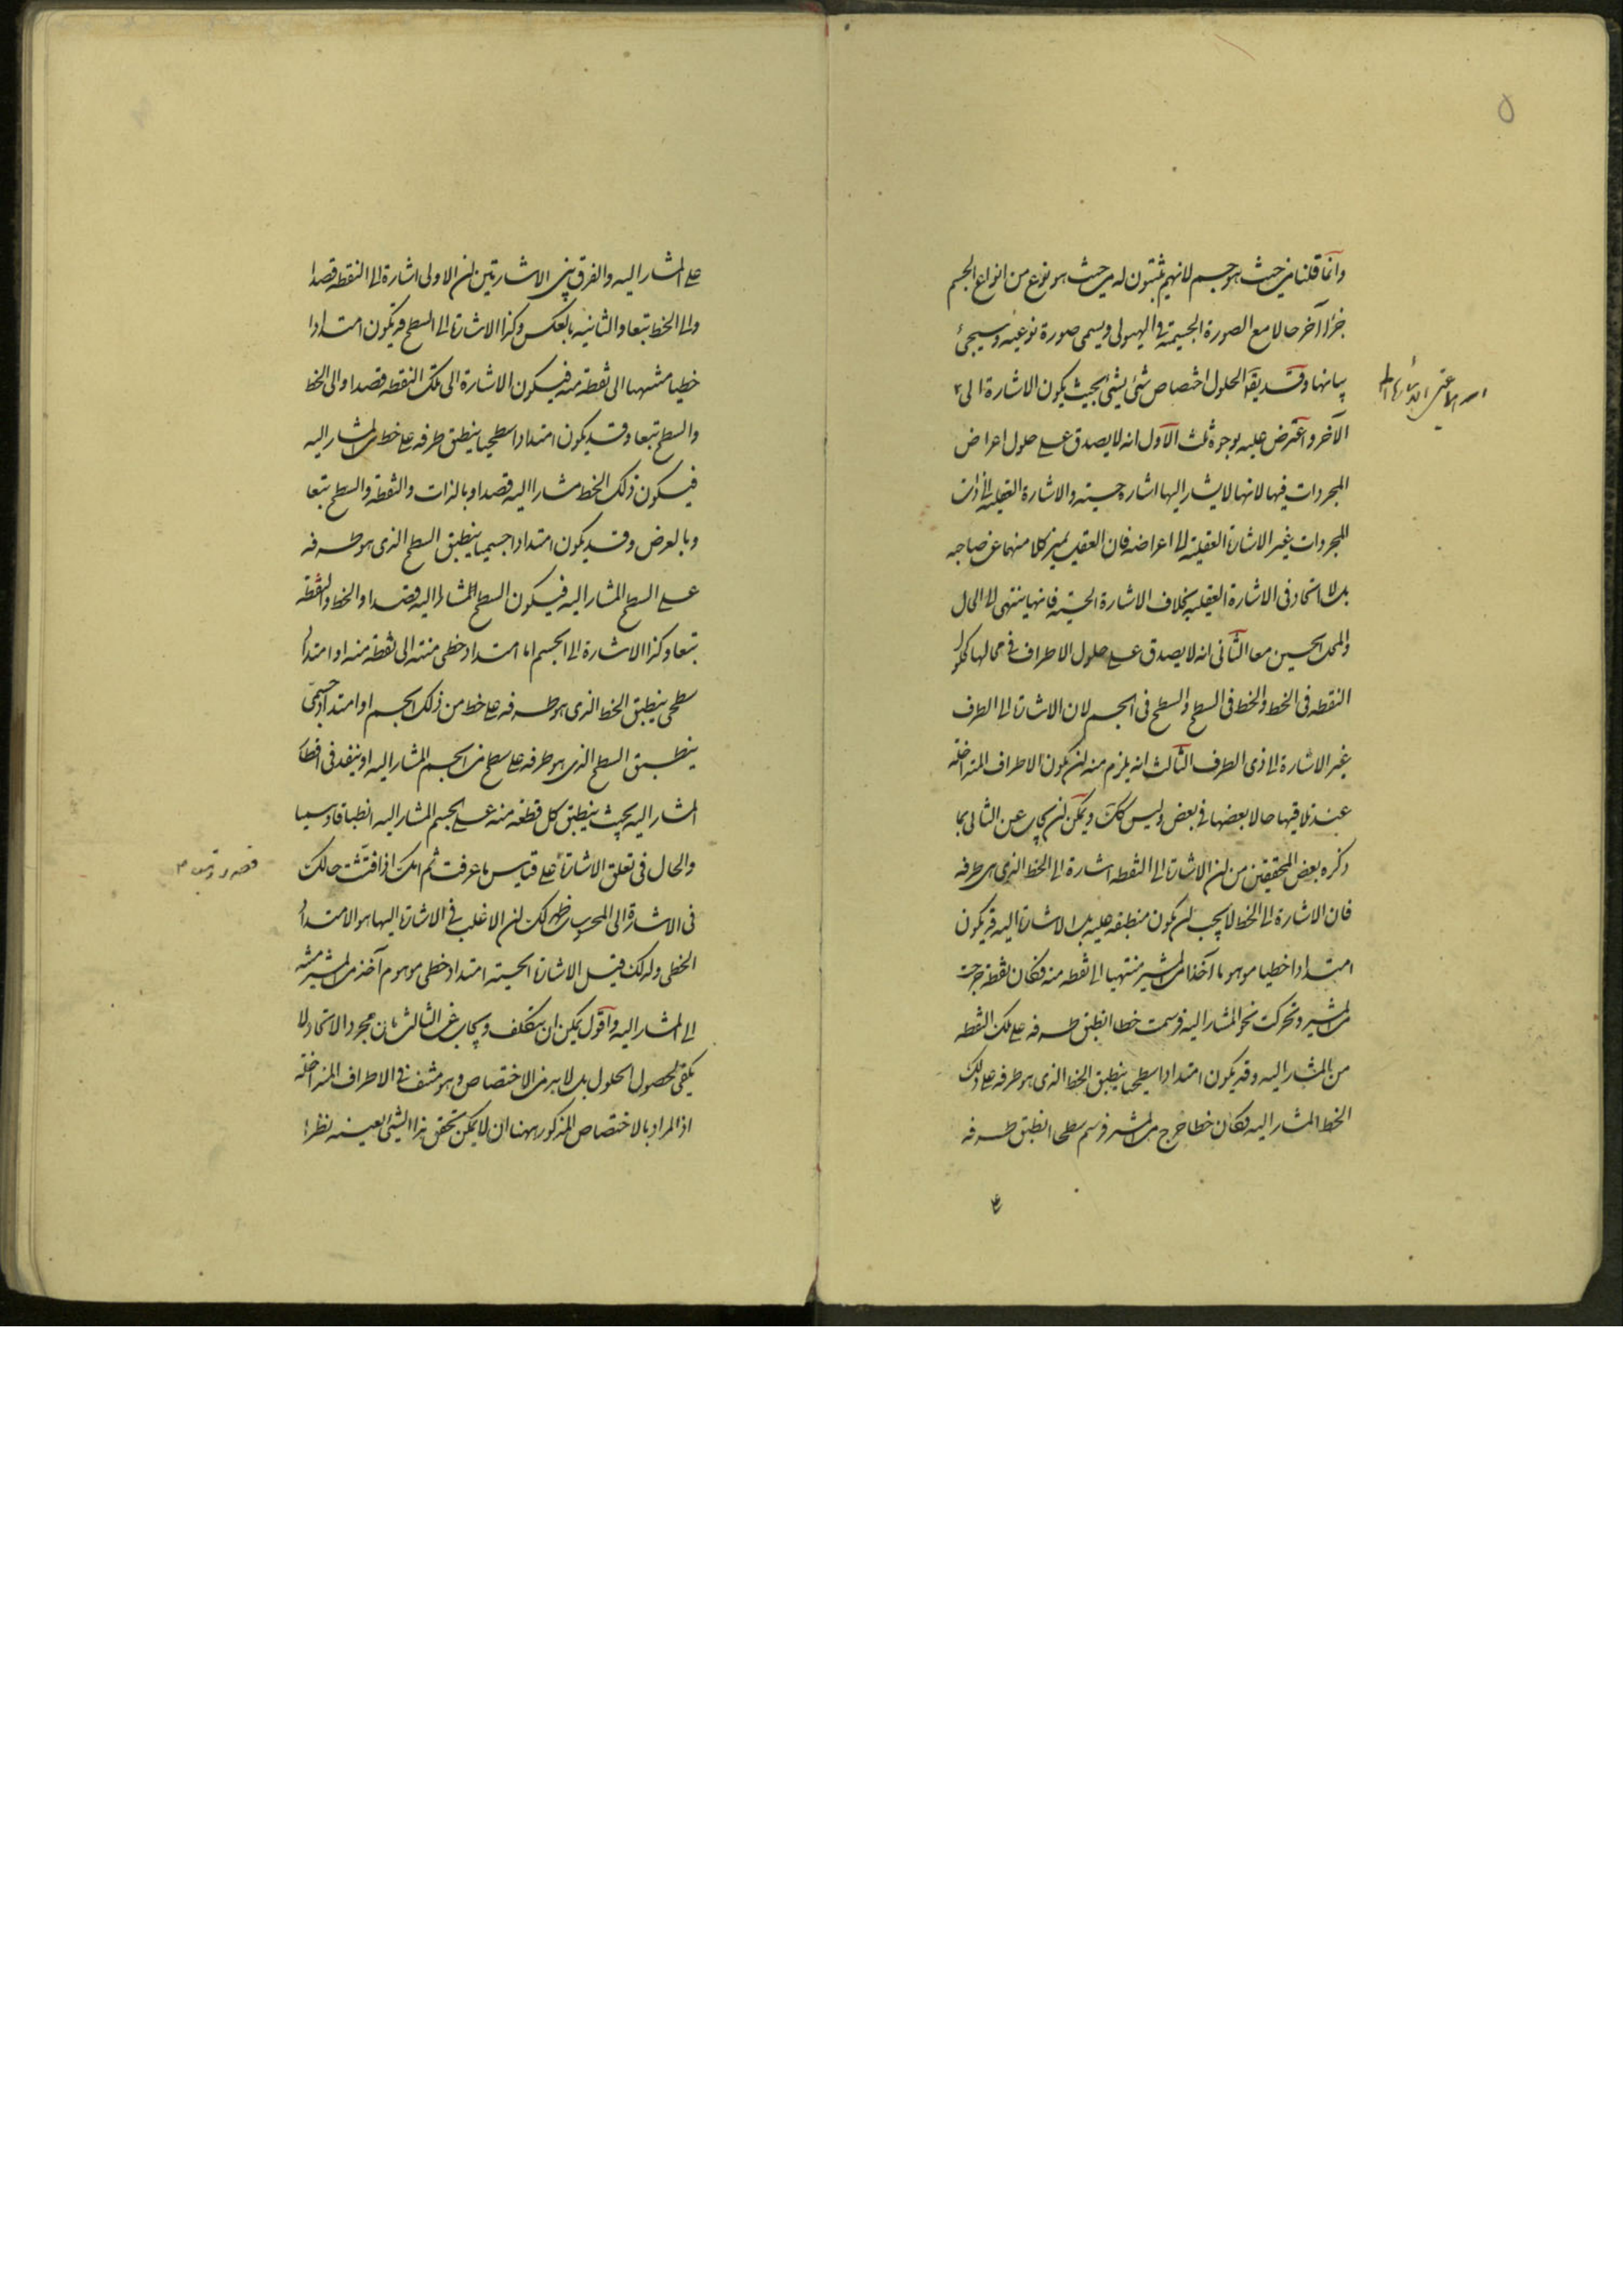 ٥
وانما قلنا من حيث هو جسم لانهم يثبتون له من حيث هو نوع من انواع الجسم
جزأ آخر حالا مع الصورة الجسمية فى الهيولى ويسمى صورة نوعية وسيجئ
بيانها وقد يقال الحلول اختصاص شئ بشئ بحيث يكون الاشارة الى
الآخر واعترض عليه بوجوه ثلث الاول انه لا يصدق على حلول اعراض
المجردات فيها لانها لا يشار اليها اشارة حسية والاشارة العقلية الى ذات
المجردات غير الاشارة العقلية الى اعراضه فان العقل يميز كلا منهما عن صاحبه
بل لا اتحاد فى الاشارة العقلية بخلاف الاشارة الحسية فانها ينتهى الى الحال
والمحل الحسيين معا الثانى انه لا يصدق على حلول الاطراف فى محالها كحلول
النقطة فى الخط والخط فى السطح والسطح فى الجسم لان الاشارة الى الطرف
غير الاشارة الى ذى الطرف الثالث انه يلزم منه ان يكون الاطراف المتداخلة
عند تلاقيها حالا بعضها فى بعض وليس كك ويمكن ان يجاب عن الثانى بما
ذكره بعض المحققين من ان الاشارة الى النقطة اشارة الى الخط الذى هى طرفه
فان الاشارة الى الخط لا يجب ان يكون منطبقه عليه بل الاشارة اليه قد يكون
امتدادا خطيا موهوما آخذا من المشير منتهيا الى نقطه منه فكان نقطة خرجت
من المشير وتحركت نحو المشار اليه فرسمت خطا انطبق طرفه على تلك النقطه
من المشار اليه وقد يكون امتدادا سطحيا ينطبق الخط الذى هو طرفه على ذلك
الخط المشار اليه فكان خطا خرج من المشير فرسم سطحا انطبق طرفه
على المشار اليه والفرق بين الاشارتين ان الاولى اشارة الى النقطه قصدا
والى الخط تبعا والثانيه بالعكس وكذا الاشارة الى السطح قد يكون امتدادا
خطيا منتهيا الى نقطة منه فيكون الاشارة الى تلك النقطه قصدا والى الخط
والسطح تبعا وقد يكون امتدادا سطحيا ينطبق طرفه على خط من المشار اليه
فيكون ذلك الخط مشارا اليه قصدا وبالذات والنقطة والسطح تبعا
وبالعرض وقد يكون امتدادا جسميا ينطبق السطح الذى هو طرفه
على السطح المشار اليه فيكون السطح المشار اليه قصدا والخط والنقطة
تبعا وكذا الاشارة الى الجسم اما امتداد خطى منته الى نقطة منه او امتداد
سطحى ينطبق الخط الذى هو طرفه على خط من ذلك الجسم او امتداد جسمى
ينطبق السطح الذى هو طرفه على سطح من الجسم المشار اليه او ينفذ فى اقطار
المشار اليه بحيث ينطبق كل قطعة منه على الجسم المشار اليه انطباقا وهميا
والحال فى تعلق الاشارة على قياس ما عرفت ثم انك اذا فتشت حالك
فى الاشارة الى المحسوس ظهر لك ان الاغلب فى الاشارة اليها هو الامتداد
الخطى ولذلك قيل الاشارة الحسية امتداد خطى موهوم آخذ من المشير منته
الى المشار اليه واقول يمكن ان يتكلف ويجاب عن الثالث بان مجرد الاتحاد لا
يكفى لحصول الحلول بل لا بد من الاختصاص وهو منتف فى الاطراف المتداخلة
اذ المراد بالاختصاص المذكور ههنا ان لا يمكن تحقق هذا الشئ بعينه نظرا